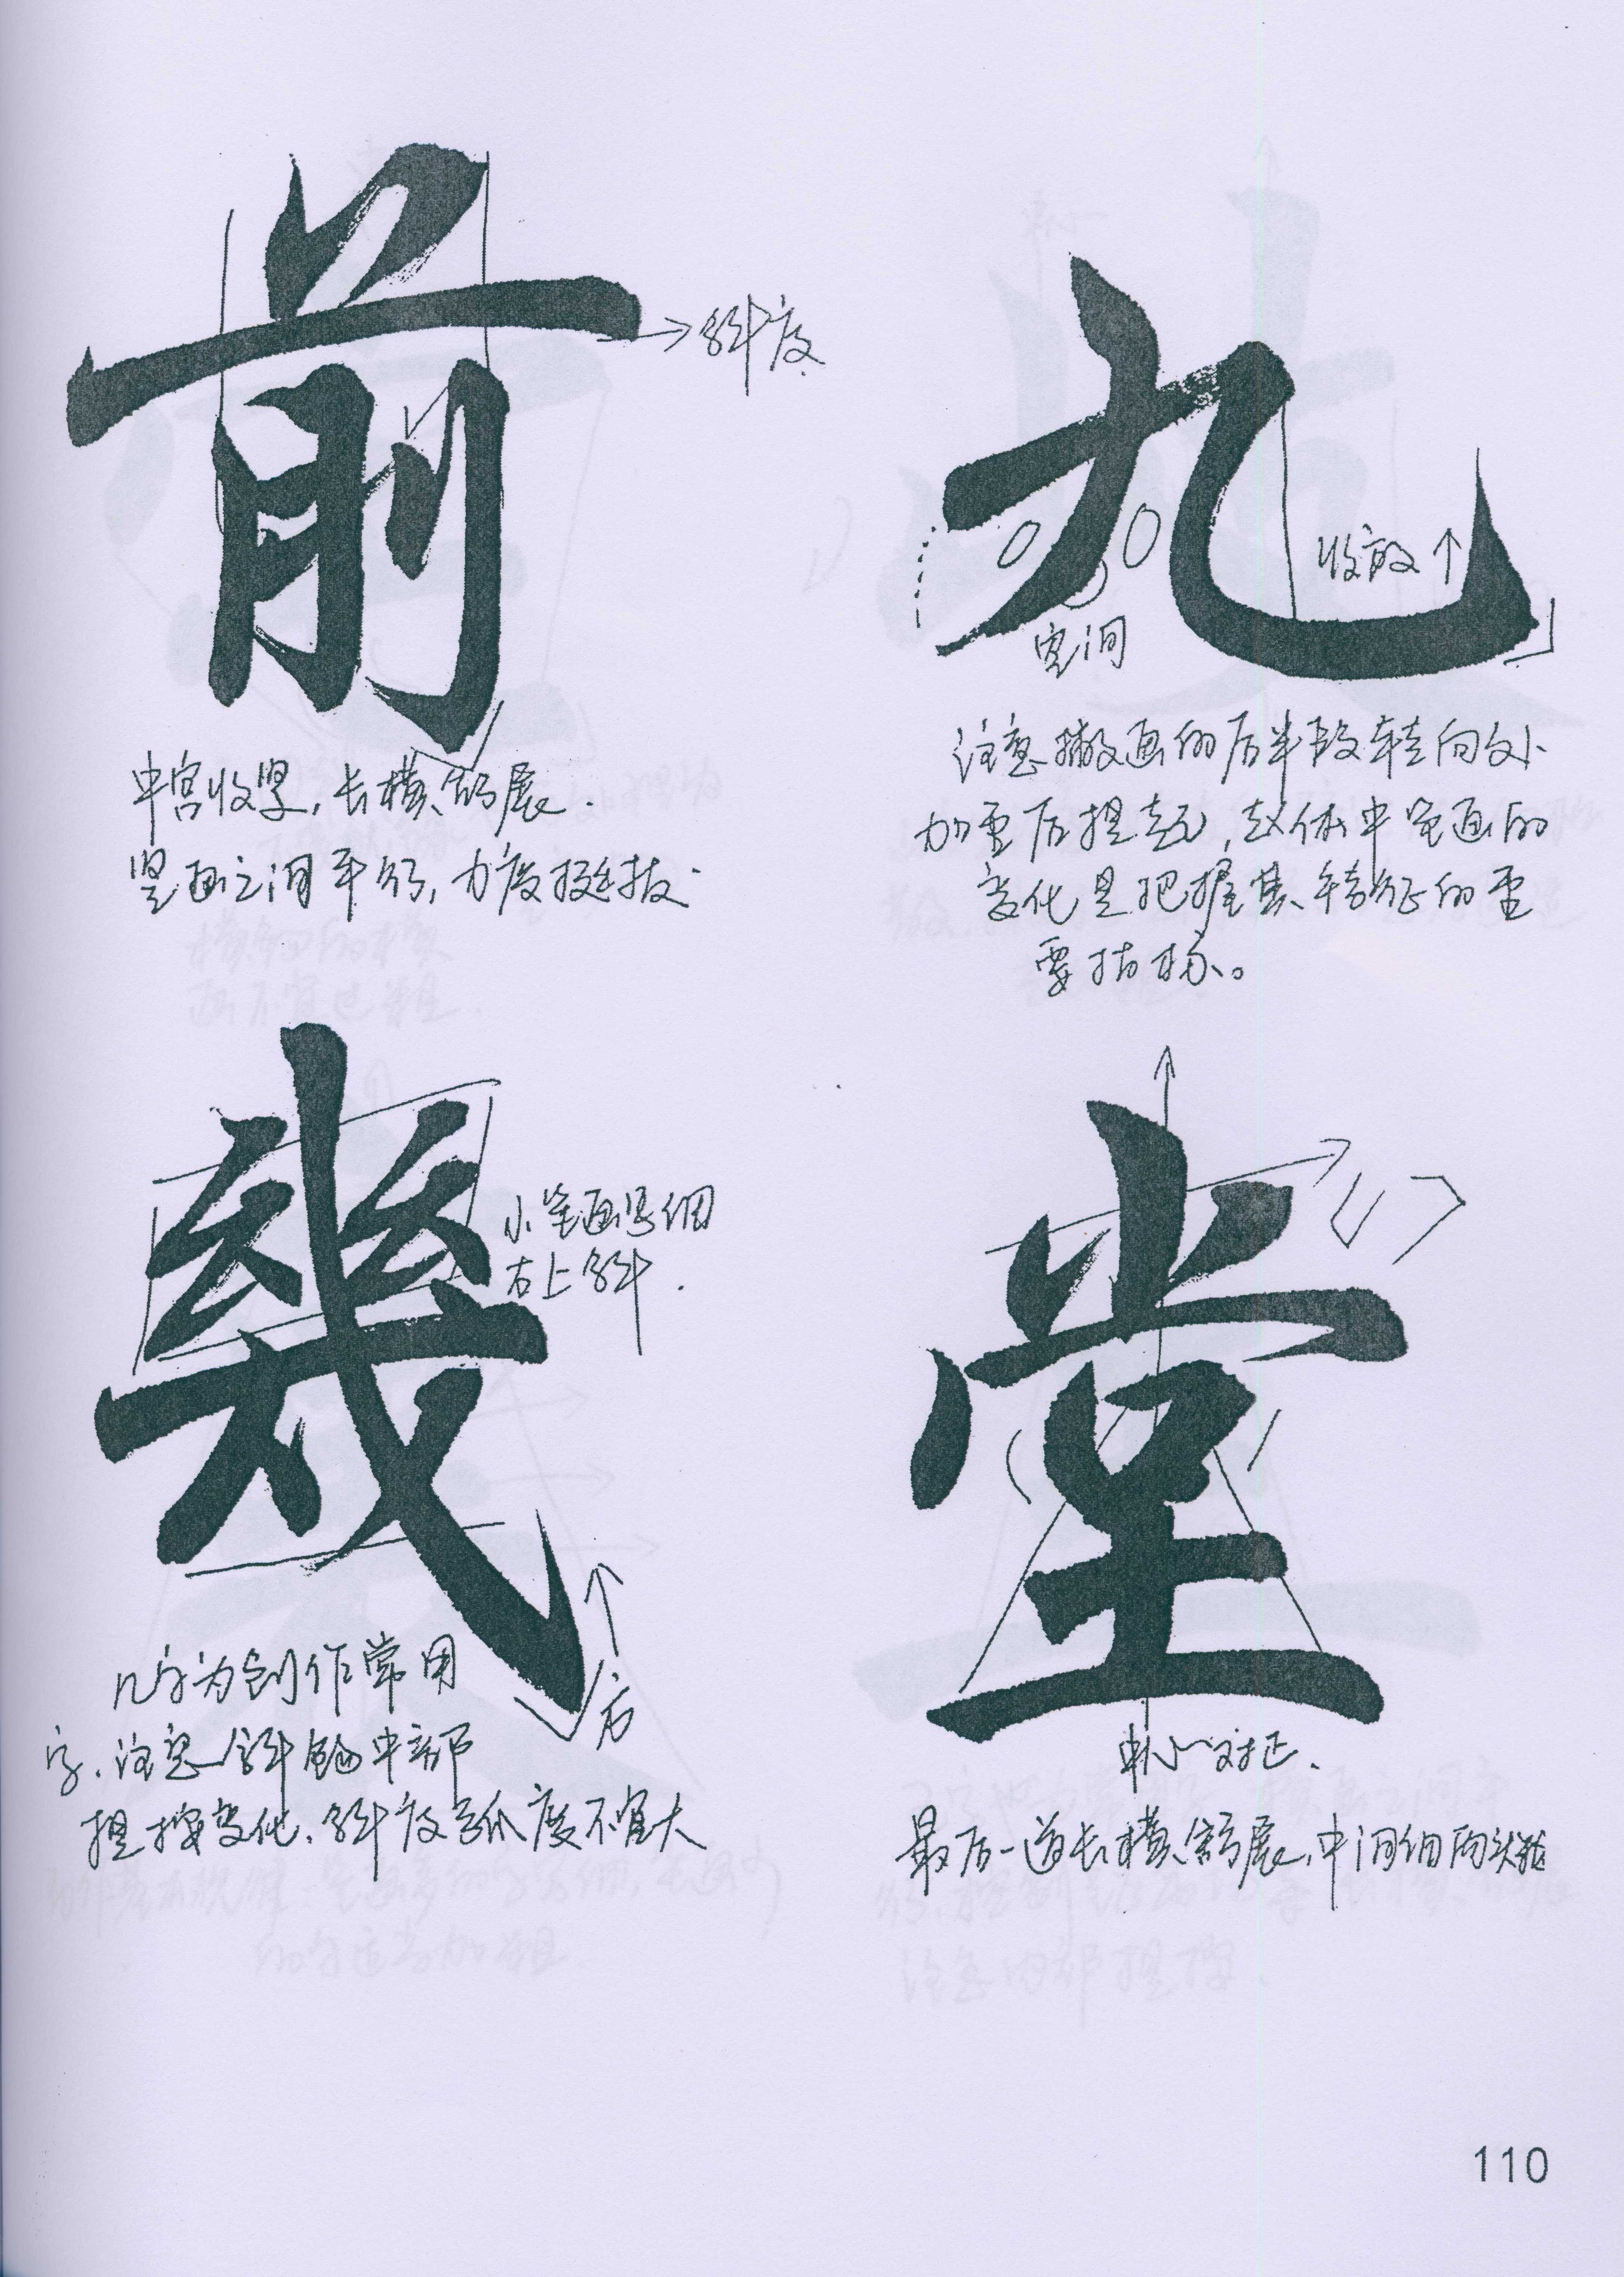 前
斜度
中宫收紧，长横舒展．
竖画之间平行，力度挺拔．
九
收放
空间
注意撇画的后半段转向处
加重后提起，赵体中笔画的
变化是把握其特征的重
要指标。
幾
小笔画写细
右上斜．
后
几字为创作常用
字．注意斜钩中部
提按变化．斜度弧度不宜大
堂
中心对正．
最后一道长横舒展，中间细两头
110